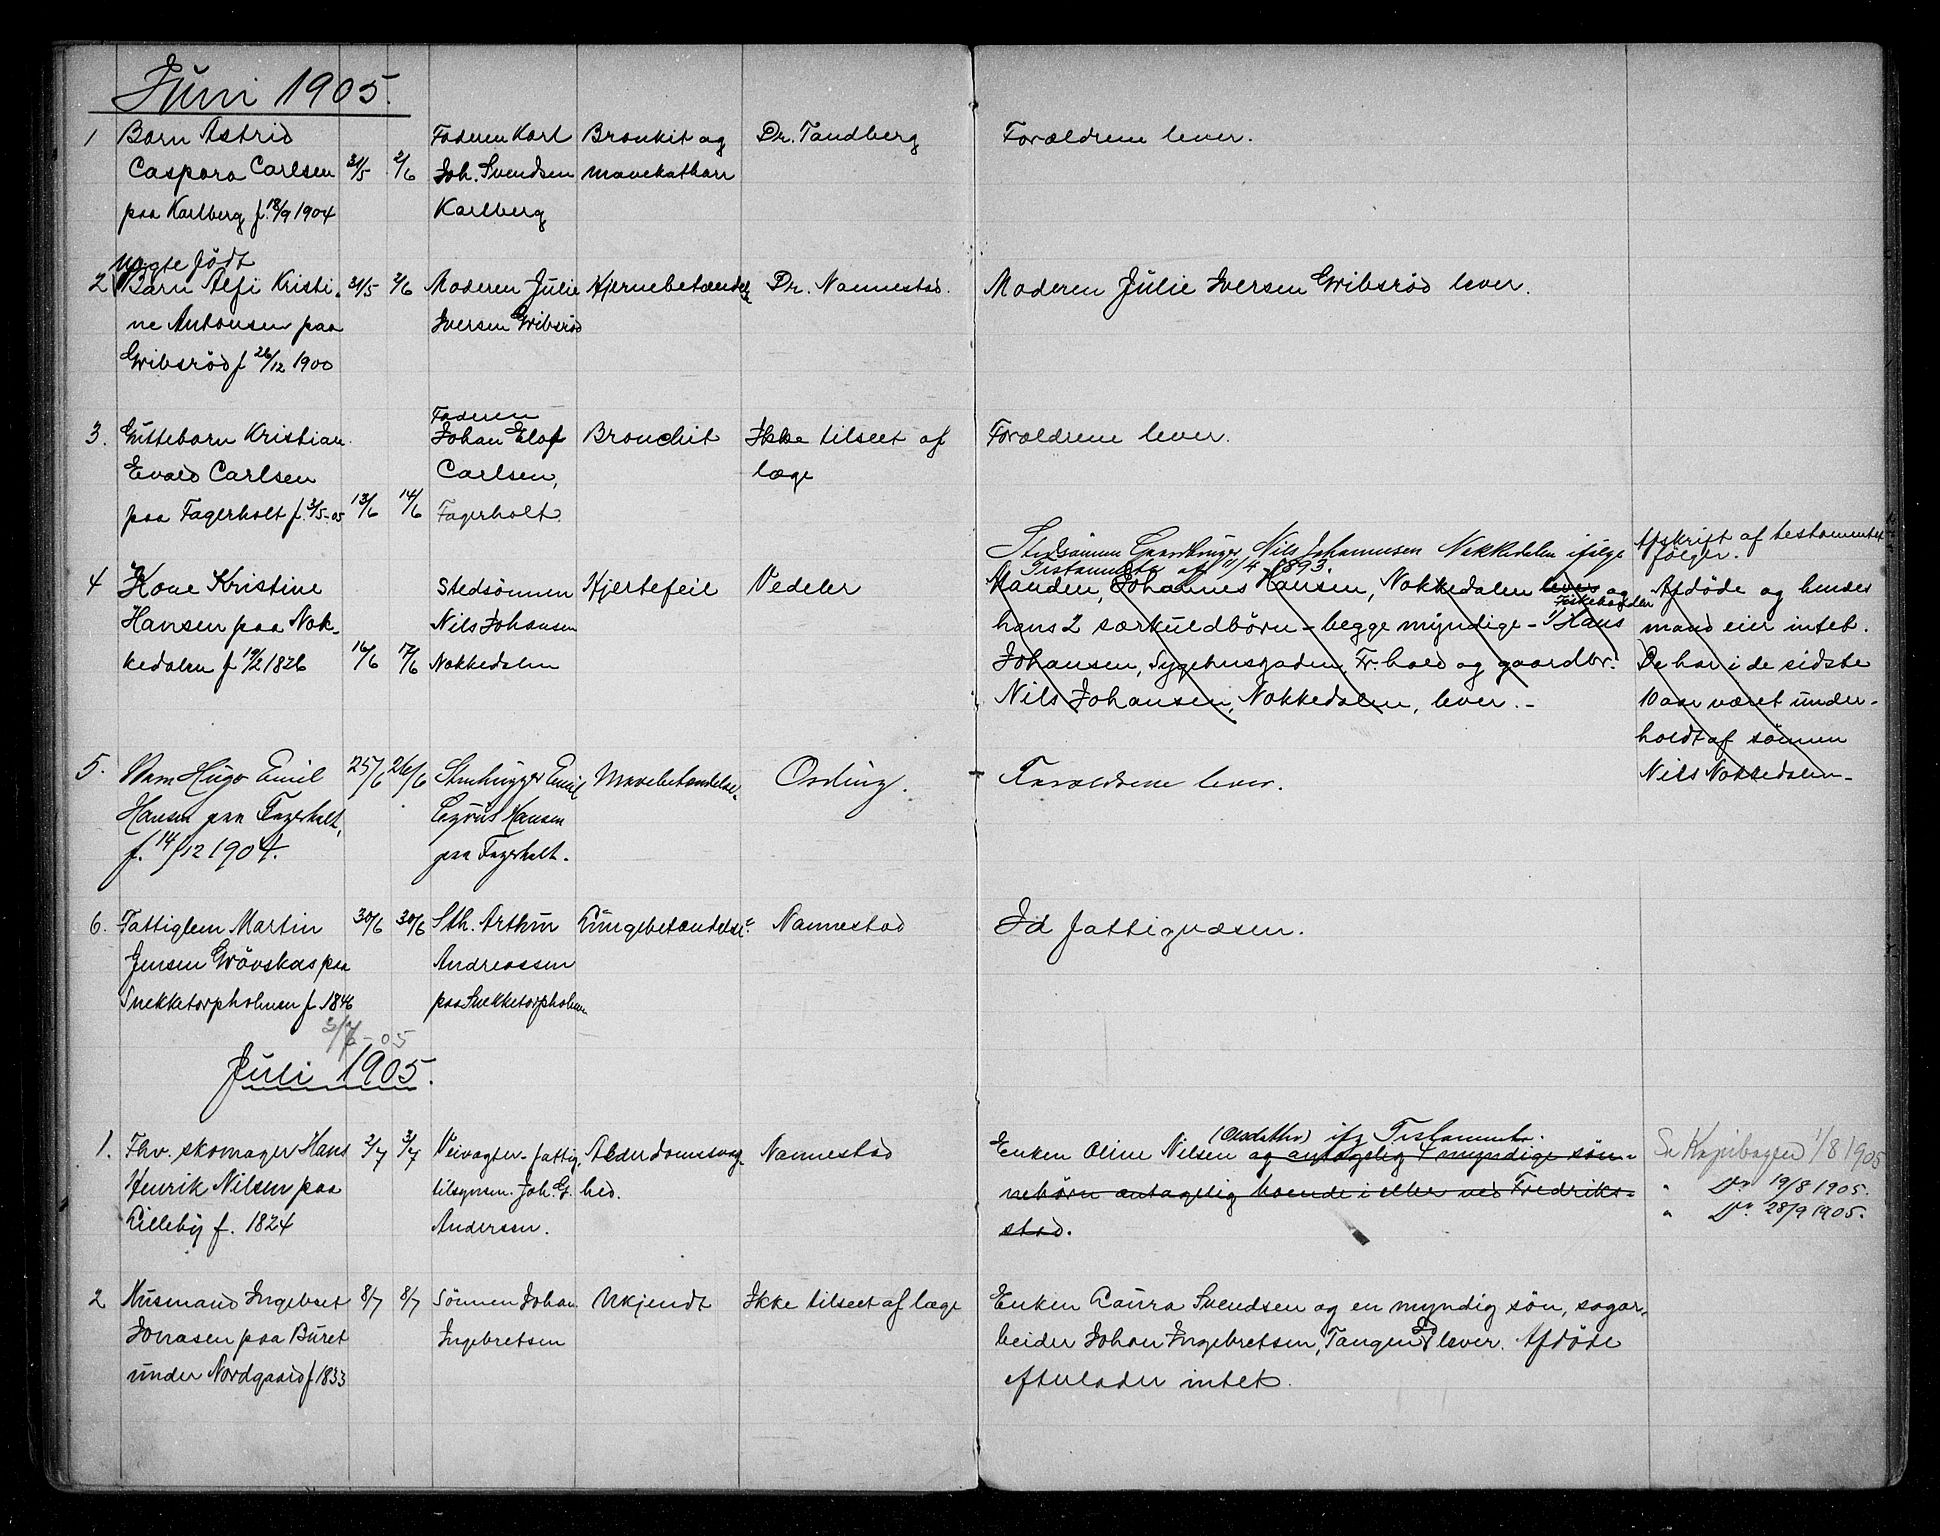 Juni 1905.
1 Barn Astrid
Caspara Carlsen
paa Karlberg f. 18/9 1904
31/5 2/6
Faderen Karl
Joh. Svendsen
Karlberg
Bronkit og
mavekatharr
Dr. Tandberg
Forældrene lever.
uægte födt
2 Barn Alfi Kristi-
ne Antonsen paa
Gribsröd f 26/12 1900
31/5 2/6
Moderen Julie
Iversen Gribsröd
Hjernebetændelse
Dr. Nannestad.
Moderen Julie Iversen Gribsröd lever.
3. Guttebarn Kristian
Evald Carlsen
paa Fagerholt f. 3/5-05
13/6 14/6
Faderen
Johan Elof
Carlsen,
Fagerholt.
Bronchit
Ikke tilseet af
læge
Forældrene lever.
4 Kone Kristine
Hansen paa Nok-
kedalen f 19/2 1826
16/6 17/6
Stedsönnen
Nils Johansen
Nokkedalen
Hjertefeil
Vedeler
Stedsönnen Gaardbruger Nils Johannesen Nokkedalen ifölge
Testamente af 11/4 1893.
Manden, Johannes Hansen, Nokkedalen lever og
hans 2 særkuldbörn - begge myndige - 1) Fiskehandler Hans
Johansen, Sygehusgaden, Fr.hald og gaardbr.
Nils Johansen, Nokkedalen, lever. -
Afskrift af testamentet
fölger.
Afdöde og hendes
mand eier intet.
De har i de sidste
10 aar været under-
holdt af sönnen
Nils Nokkedalen-
5. Barn Hugo Emil
Hansen paa Fagerholt,
f. 14/12 1904.
25/6 26/6
Stenhugger Emil
Hansen
paa Fagerholt.
Mavebetændelse.
Forældrene lever.
6. Fattiglem Martin
Jensen Grövskas paa
Snekketorpholmen f. 1846
30/6 30/6
Sth. Arthur
Andreassen
paa Snekketorpholmen
Lungebetændelse
Nannestad
Id fattigvæsen.
3/7-05
Juli 1905.
1. Fhv. skomager Hans
Henrik Nilsen paa
Lilleby f. 1824
2/7 3/7
Veivogter - fattig-
tilsynsm. Joh. G.
Andersen.
Alderdomssvag-
hed.
Nannestad
(Olsdatter) ifg Testamente.
Enken Oline Nilsen og antagelig 4 myndige sön-
nebörn antagelig boende i eller ved Fredrik-
stad.
Se Kopibogen 1/8 1905
" Do 19/8 1905.
" Do 28/9 1905.
2 Husmand Ingebret
Jonasen paa Buret
under Nordgaard f 1833
8/7 8/7
Sönnen Johan
Ingebretsen
Ukjendt
Ikke tilseet af læge
Enken Laura Svendsen og en myndig sön, sagar-
beider Johan Ingebretsen, Tangen Id lever. Afdöde
efterlader intet.